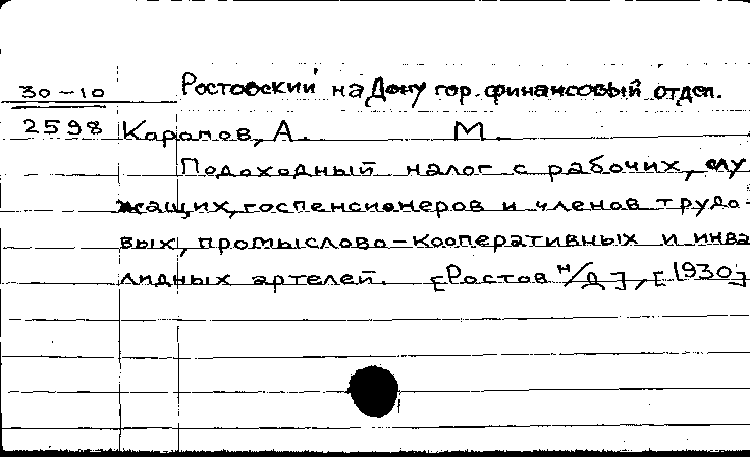 Ростовский на Дону гор. финансовый отдел.
30-10
2598 Карапов, А. М.
Подоходный налог с рабочих, слу
жащих, госпенсионеров и членов трудо-
вых, промыслово-кооперативных и инва
лидных артелей. [Ростов н/Д], [1930]